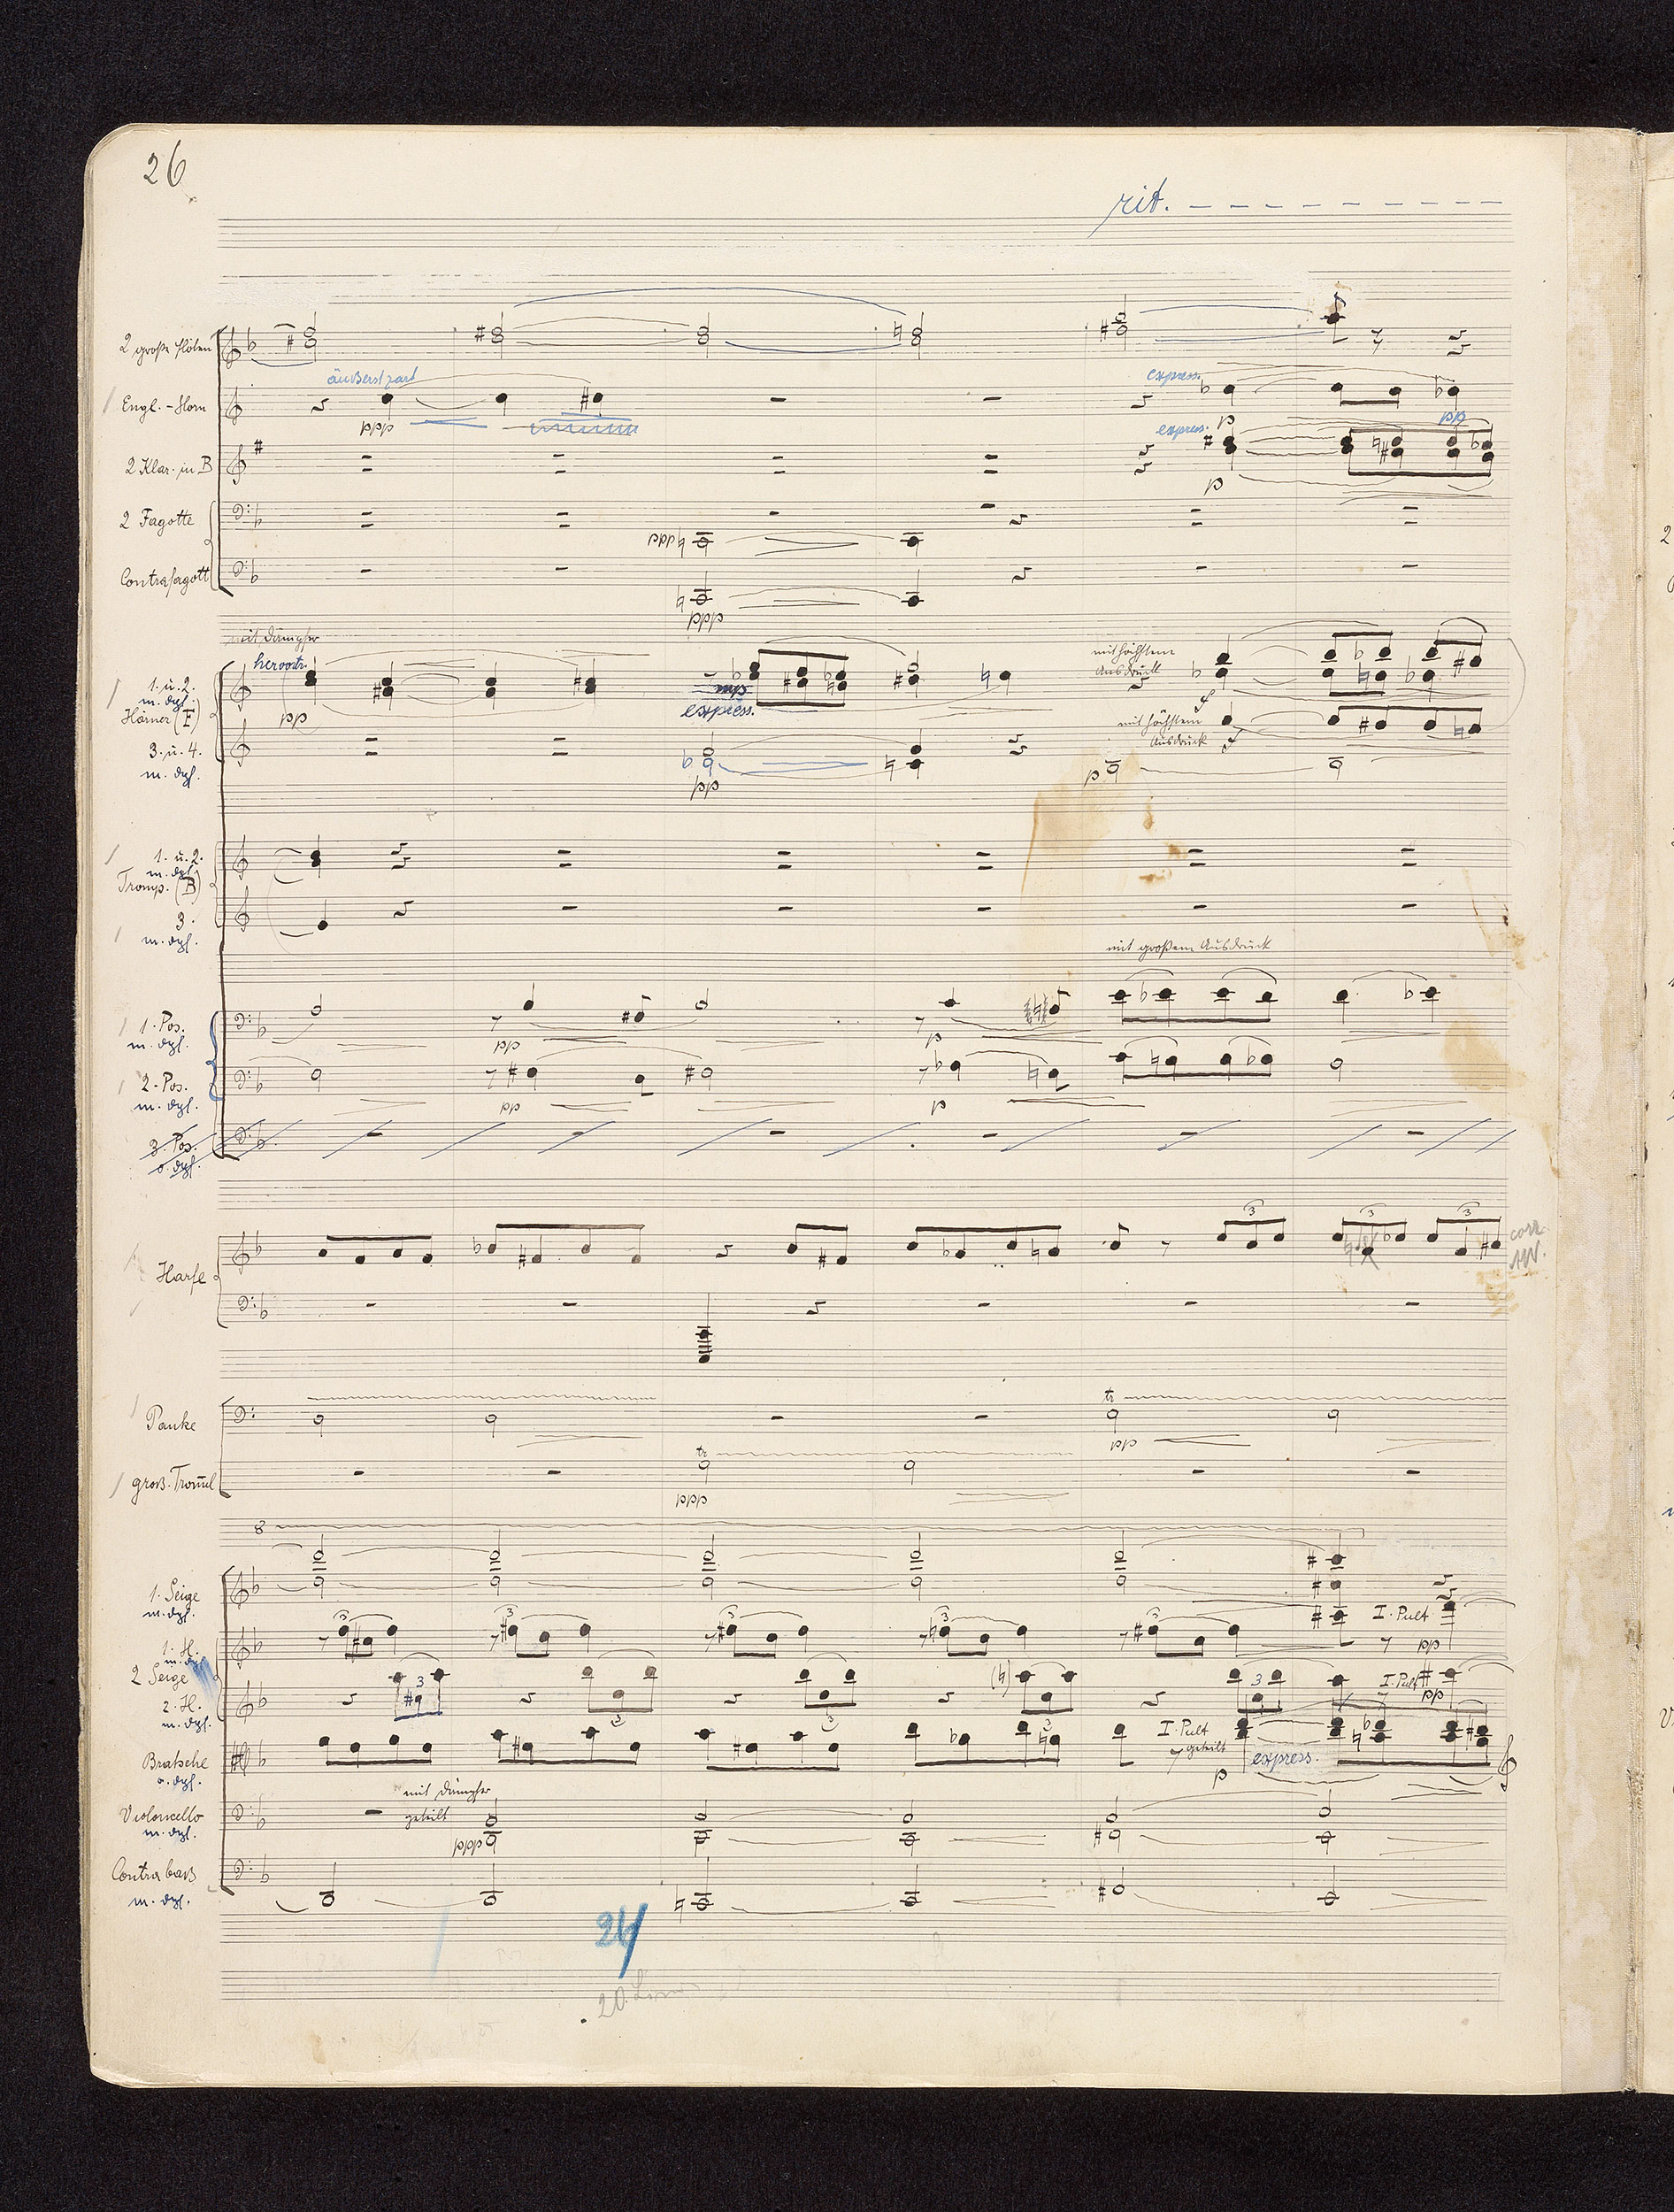 26
rit.
2 große Flöten
äußerst zart
express.
Engl.-Horn
ppp
p
pp
express.
2 Klar. in B
p
2 Fagotte
ppp
Contrafagott
ppp
mit Dämpfer
hervortr.
mit höchstem
Ausdruck
1. u. 2.
m. Dpf.
Hörner (F)
pp
mp
express.
f
mit höchstem
Ausdruck
f
3. u. 4.
m. Dpf.
pp
p
1. u. 2.
m. Dpf.
Tromp. (B)
3.
m. Dpf.
mit großem Ausdruck
1. Pos.
m. Dpf.
pp
p
2. Pos.
m. Dpf.
pp
p
3. Pos.
o. Dpf.
3
3
3
corr.
AW.
Harfe
tr
Pauke
pp
tr
groß. Trom̄el
ppp
8
1. Geige
m. Dpf.
3
3
3
3
3
I. Pult
pp
1. H.
m. D.
2 Geige
3
3
3
3
3
I. Pult
pp
2. H.
m. Dpf.
I. Pult
geteilt
p
express.
Bratsche
o. Dpf.
mit Dämpfer
geteilt
Violoncello
m. Dpf.
ppp
Contrabaß
m. Dpf.
24
20.